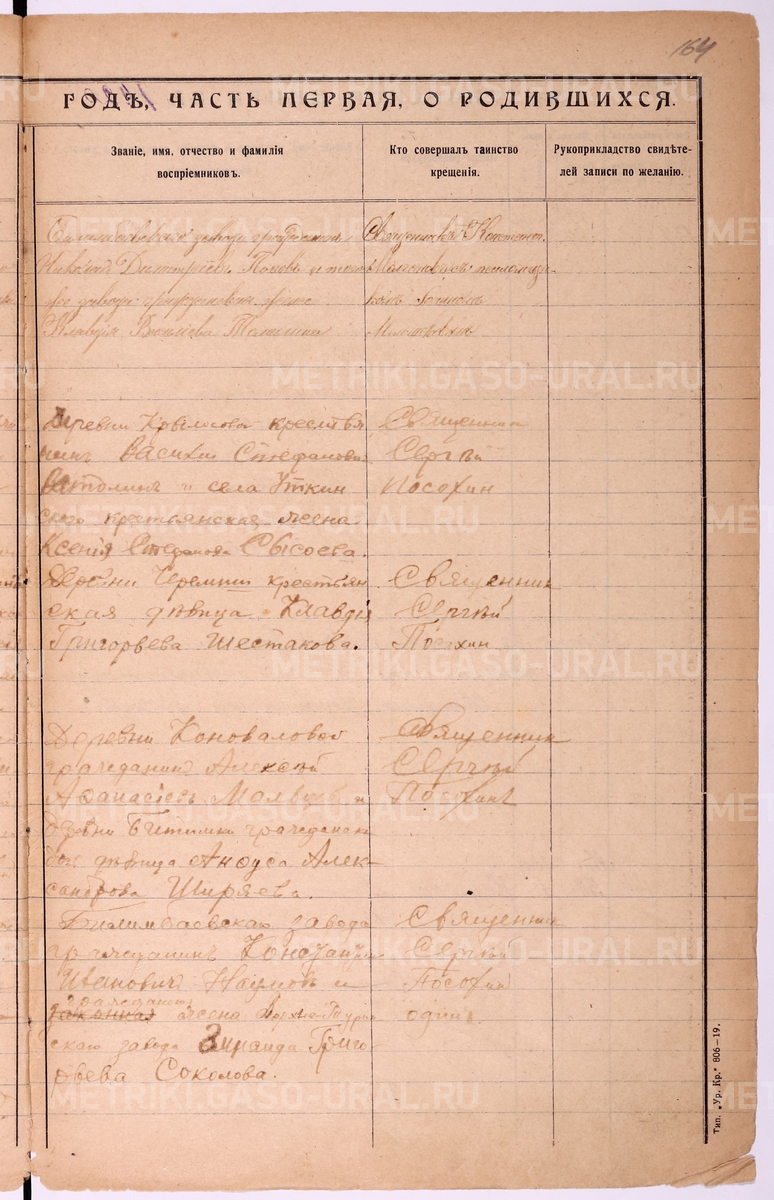 164
ГОДЪ, ЧАСТЬ ПЕРВАЯ, О РОДИВШИХСЯ.
Званіе, имя, отчество и фамилія
воспріемниковъ.
Кто совершалъ таинство
крещенія.
Рукоприкладство свидѣте-
лей записи по желанію.
завода гражданинъ
Николай Димитріевъ Поповъ и
завода гражданка
Клавдія
Священникъ
Деревни Крылосова крестья
нинъ Василій Стефановъ
и села Уткин
ского крестьянская жена
Ксенія Стефанова Сысоева.
Священник
Сергѣй
Посохин
Деревни Черемши крестьян
ская дѣвица Клавдія
Григорьева Шестакова.
Священник
Сергѣй
Посохин
Деревни Коноваловой
гражданинъ Алексѣй
Афанасіевъ и
деревни Битимки гражданск
дѣвица Алек-
сандрова Ширяева.
Священник
Сергѣй
Посохинъ
Билимбаевскаго завода
гражданинъ Константин
Ивановичъ Наумовъ и
жена Верхне-Турин
скаго завода Зинаида Григо-
рьева Соколова.
Священник
Сергѣй
Посохин
один
Тип. „Ур. Кр.“ 806—19.
METRIKI.GASO-URAL.RU